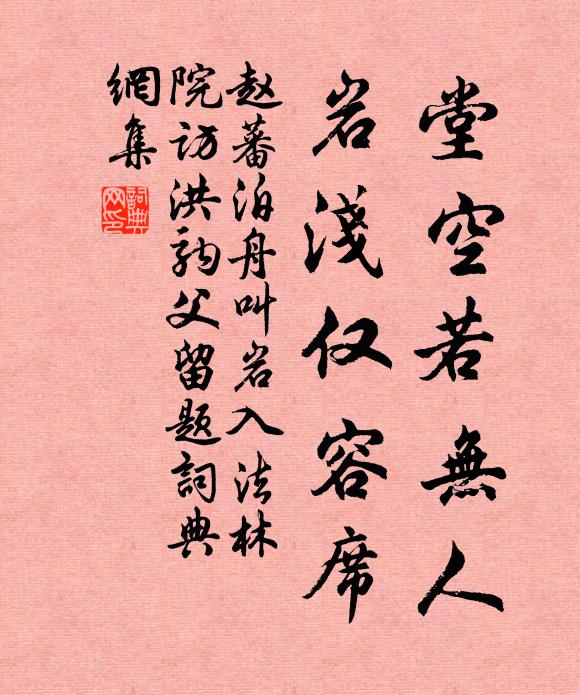 堂空若無人
岩淺仅容席
赵蕃泊舟叫岩入法林
院访洪驹父留题詞典
網集
詞典
网印